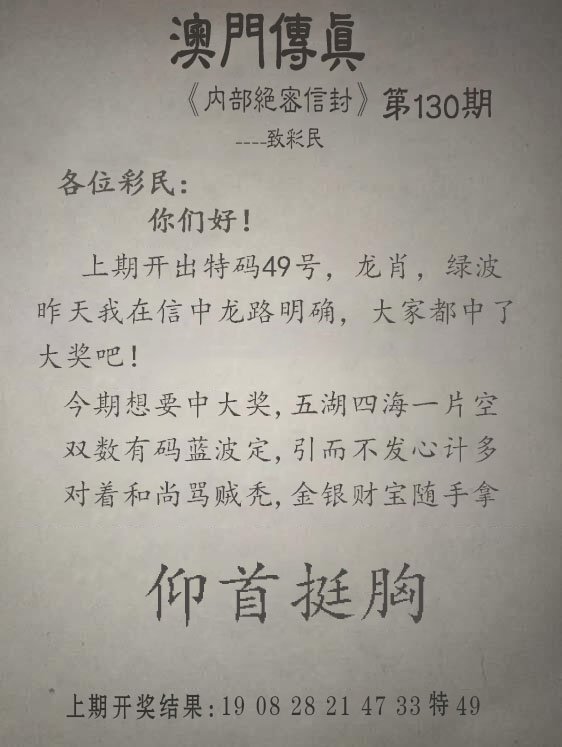 澳門傳真
《内部絕密信封》第130期
----致彩民
各位彩民:
你们好!
上期开出特码49号，龙肖，绿波
昨天我在信中龙路明确，大家都中了
大奖吧!
今期想要中大奖,五湖四海一片空
双数有码蓝波定,引而不发心计多
对着和尚骂贼秃,金银财宝随手拿
仰首挺胸
上期开奖结果:19 08 28 21 47 33特49